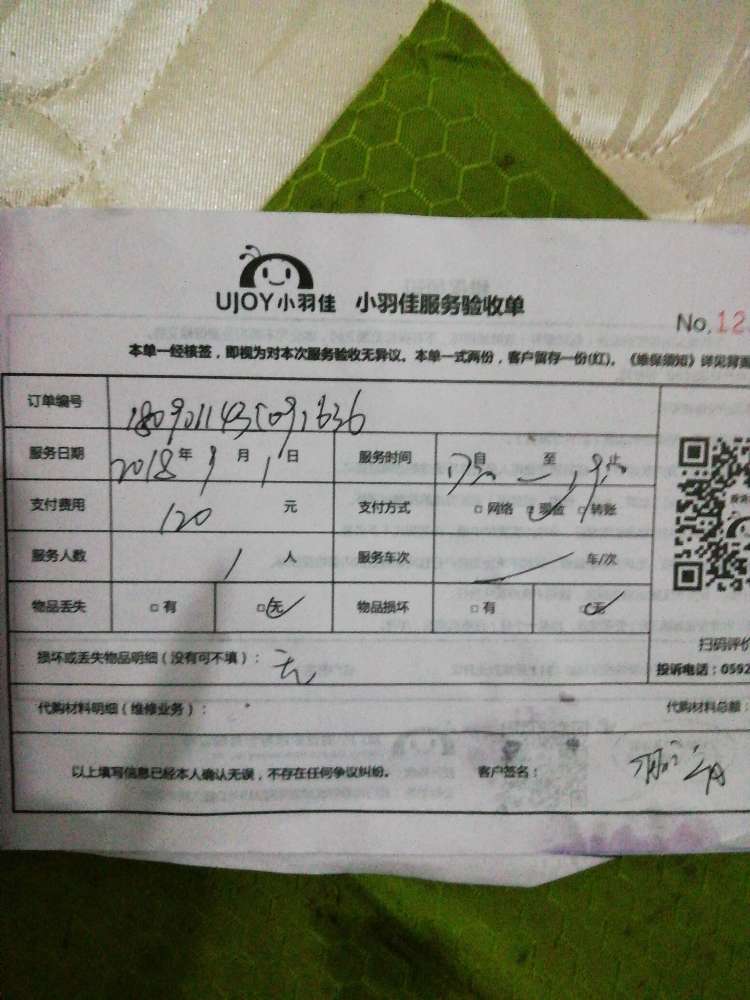 UJOY小羽佳 小羽佳服务验收单
No. 12
本单一经核签，即视为对本次服务验收无异议。本单一式两份，客户留存一份(红)。《维保须知》详见背面
订单编号
服务日期 2018年9月1日 服务时间 自 至 止
支付费用 120 元 支付方式 □网络 □现金 □转账
服务人数 1 人 服务车次 车/次
物品丢失 □有 □无 物品损坏 □有 □无
扫码评价
损坏或丢失物品明细（没有可不填）： 无
投诉电话：0592
代购材料明细（维修业务）： 代购材料总额：
以上填写信息已经本人确认无误，不存在任何争议纠纷。 客户签名：